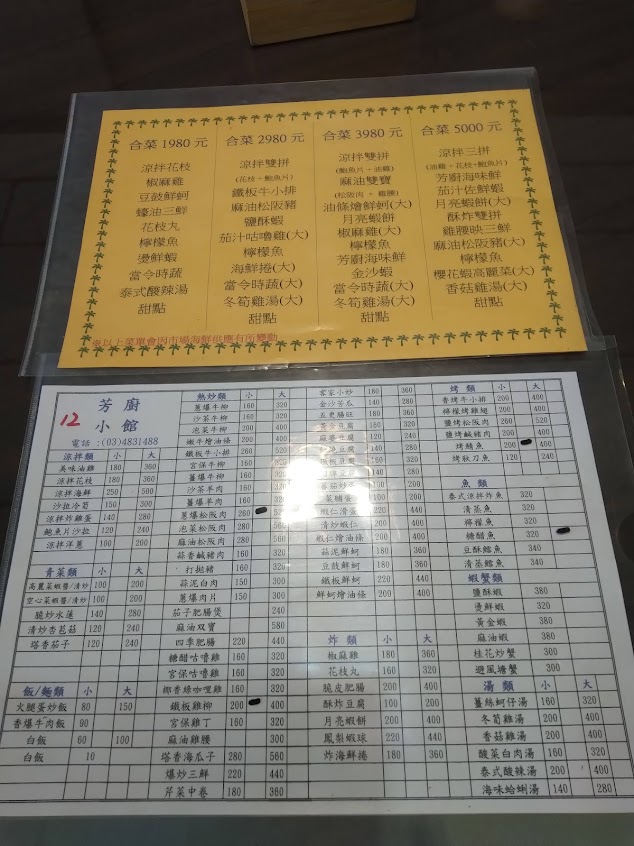 合菜 1980 元
涼拌花枝
椒麻雞
豆鼓鮮蚵
蠔油三鮮
花枝丸
檸檬魚
燙鮮蝦
當令時蔬
泰式酸辣湯
甜點
合菜 2980 元
涼拌雙拼
(花枝+鮑魚片)
鐵板牛小排
麻油松阪豬
鹽酥蝦
茄汁咕嚕雞(大)
檸檬魚
海鮮捲(大)
當令時蔬(大)
冬筍雞湯(大)
甜點
合菜 3980 元
涼拌雙拼
(鮑魚片+油雞)
麻油雙寶
(松阪肉+雞腰)
油條燴鮮蚵(大)
月亮蝦餅
椒麻雞(大)
檸檬魚
芳廚海味鮮
金沙蝦
當令時蔬(大)
冬筍雞湯(大)
甜點
合菜 5000 元
涼拌三拼
(油雞+花枝+鮑魚片)
芳廚海味鮮
茄汁佐鮮蝦
月亮蝦餅(大)
酥炸雙拼
雞腰映三鮮
麻油松阪豬(大)
檸檬魚
櫻花蝦高麗菜(大)
香菇雞湯(大)
甜點
※以上菜單會因市場海鮮供應有所變動
12
芳廚
小館
電話:(03)4831488
涼拌類 小 大
美味油雞 180 360
涼拌花枝 180 360
涼拌海鮮 250 500
沙拉冷筍 150 300
涼拌炸雞蛋 140 280
鮑魚片沙拉 120 240
涼拌洋蔥 100 200
青菜類 小 大
高麗菜蝦醬/清炒 100 200
空心菜蝦醬/清炒 100 200
脆炒水蓮 140 280
清炒杏苞菇 120 240
塔香茄子 120 240
飯/麵類 小 大
火腿蛋炒飯 80 150
香爆牛肉飯 90
白飯 60 100
白飯 10
熱炒類 小 大
蔥爆牛柳 160 320
沙茶牛柳 160 320
泡菜牛柳 200 400
嫩牛燴油條 200 400
鐵板牛小排 260 520
宮保牛柳 160
薑爆牛柳 160
沙茶羊肉 160 320
薑爆羊肉 160 320
蔥爆松阪肉 260
泡菜松阪肉 280 560
麻油松阪肉 280 560
蒜香鹹豬肉 160 320
打拋豬 160 320
蒜泥白肉 150 300
蔥爆肉片 150 300
茄子肥腸煲 240
麻油双寶 580
四季肥腸 220 440
糖醋咕嚕雞 160 320
宮保咕嚕雞 160 320
椰香綠咖哩雞 160 320
鐵板雞柳 200 400
宮保雞丁 160 320
麻油雞腰 300
塔香海瓜子 280 560
爆炒三鮮 220 440
芹菜中卷 180 360
客家小炒 180 360
金沙苦瓜 140 280
五更腸旺 180 360
蝦仁滑蛋 220 440
清炒蝦仁 200 400
蝦仁燴油條 200 400
蒜泥鮮蚵 200 400
豆鼓鮮蚵 200 400
鐵板鮮蚵 220 440
鮮蚵燴油條 200 400
炸類 小 大
椒麻雞 180 360
花枝丸 160 320
脆皮肥腸 200 400
酥炸豆腐 100 200
月亮蝦餅 200 400
鳳梨蝦球 220 440
炸海鮮捲 180 360
烤類 小 大
香烤牛小排 200 400
檸檬烤雞翅 200 400
鹽烤松阪肉 260 520
鹽烤鹹豬肉 200 400
烤鯖魚 200 400
烤秋刀魚 120 240
魚類
泰式涼拌炸魚 320
清蒸魚 320
檸檬魚 320
糖醋魚 320
豆酥鱈魚 340
清蒸鱈魚 340
蝦蟹類
鹽酥蝦 380
燙鮮蝦 320
黃金蝦 380
麻油蝦 380
桂花炒蟹 300
避風塘蟹 300
湯類 小 大
薑絲蚵仔湯 160 320
冬筍雞湯 200 400
香菇雞湯 200 400
酸菜白肉湯 160 320
泰式酸辣湯 200 400
海味蛤蜊湯 140 280